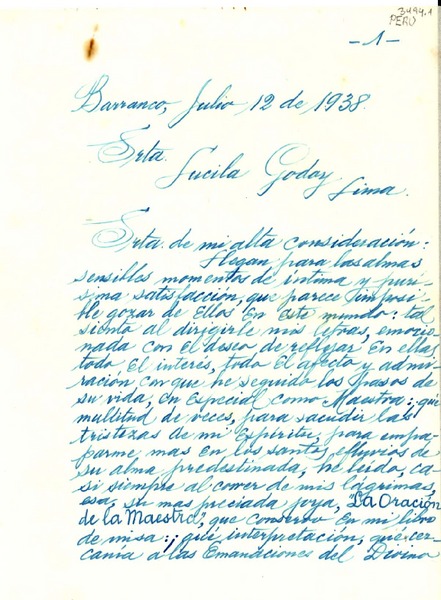 3494.1
PERU
-1-
Barranco, Julio 12 de 1938.
Srta.
Lucila Godoy.
Lima.
Srta. de mi alta consideración:
Llegan para las almas
sensibles momentos de íntima y purí-
sima satisfacción, que parece imposi-
ble gozar de Ellos En Este mundo: tal
siento al dirigirle mis letras, emocio-
nada con El deseo de reflejar En ellas,
todo El interés, todo El afecto y admi-
ración con que he seguido los pasos de
su vida, En Especial como Maestra; que
multitud de veces, para sacudir las
tristezas de mi Espíritu, para empa-
parme, mas en los santos efluvios de
su alma predestinada, he leído, ca-
si siempre al correr de mis lágrimas,
esa, su mas preciada joya, "La Oración
de la Maestra", que conservo En mi libro
de misa: ¡qué interpretación, qué cer-
canía a las Emanaciones del Divino